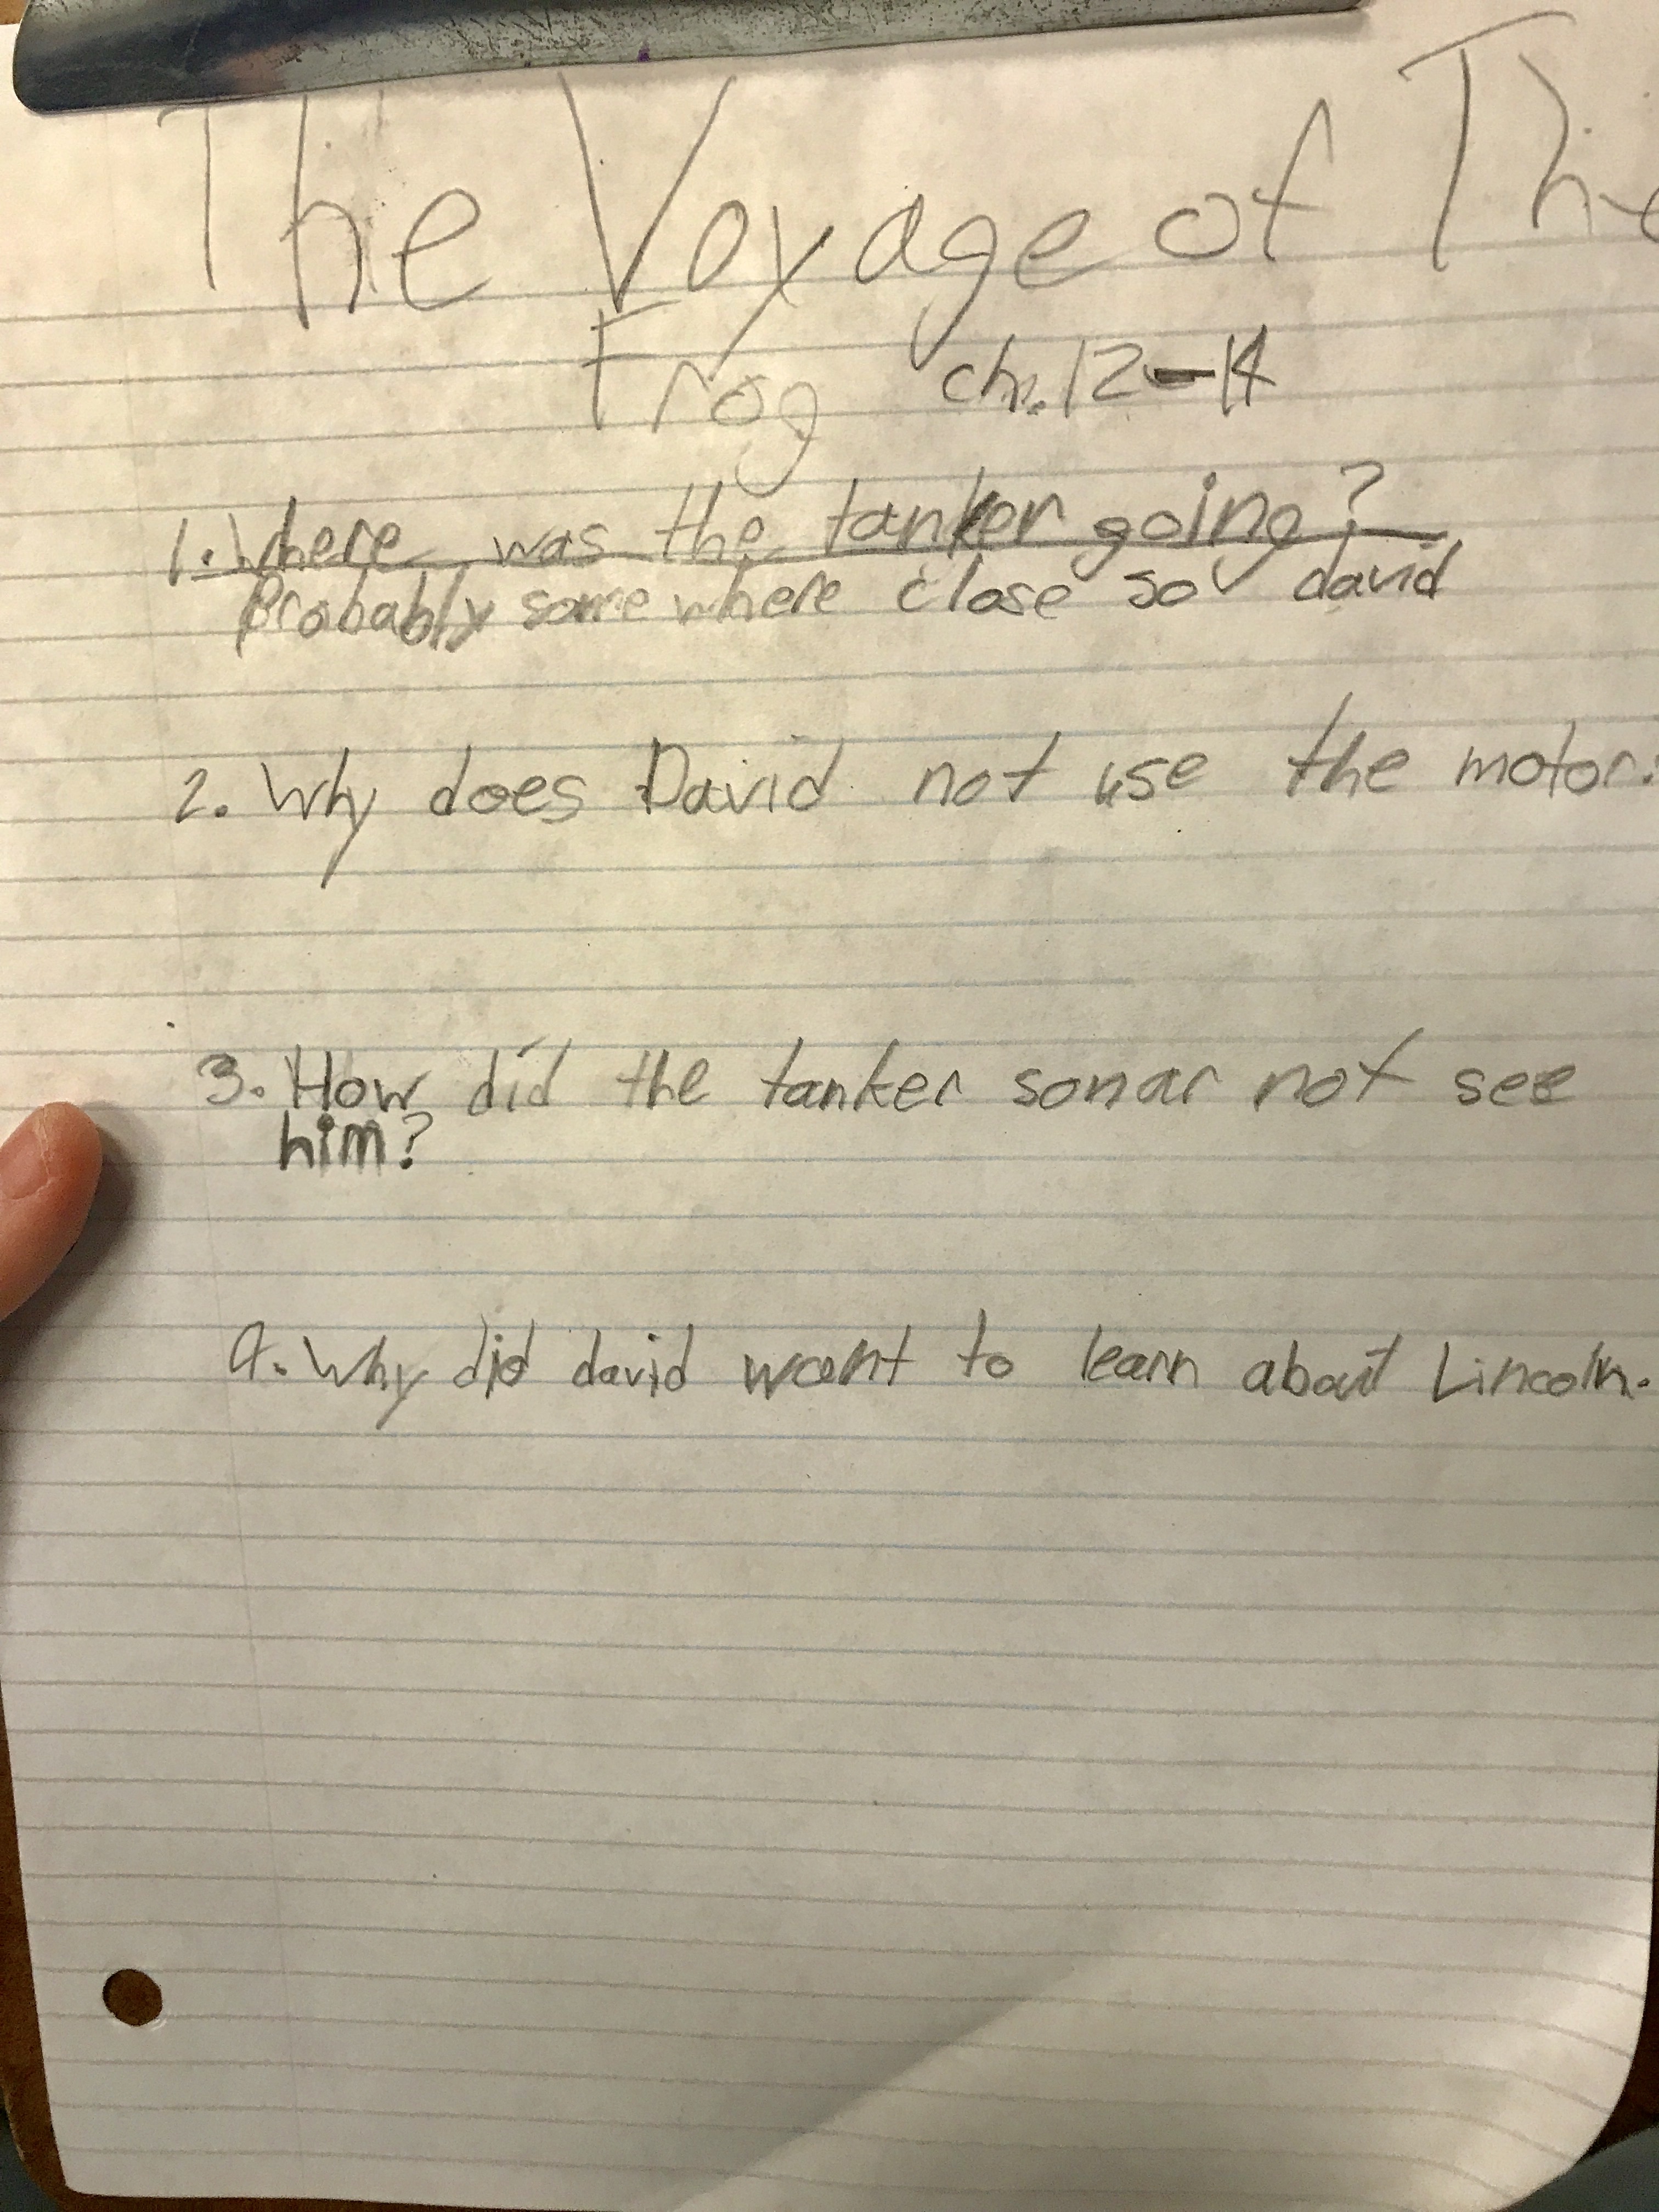 The Voyage of The
Frog ch. 12-14
1. Where was the tanker going?
Probably some where close so david
2. Why does David not use the motor.
3. How did the tanker sonar not see
him?
4. Why did david want to learn about Lincoln.